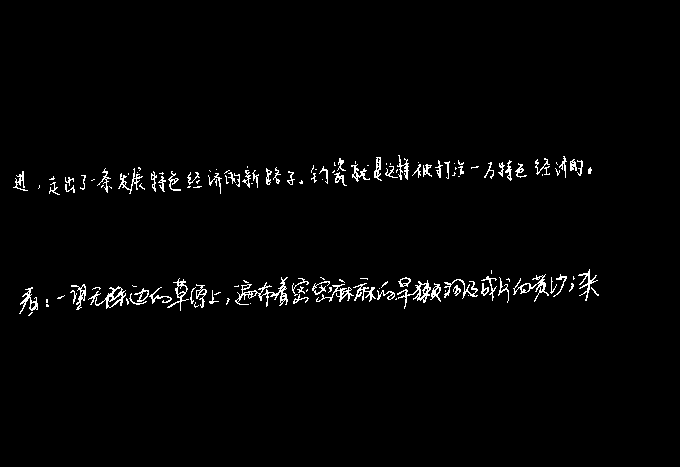 进,走出了一条发展特色经济的新路子。钧瓷就是这样被打造一方特色经济的。
看:一望无际边的草原上,遍布着密密麻麻的旱獭洞及成片的黄沙,